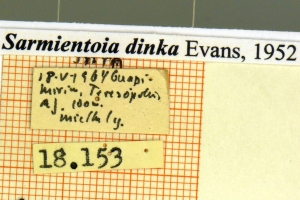 Sarmientoia dinka Evans, 1952
18-V-1964 Guapi-
mirim, Teresópolis,
RJ. 100m.
Mielke lg.
18.153